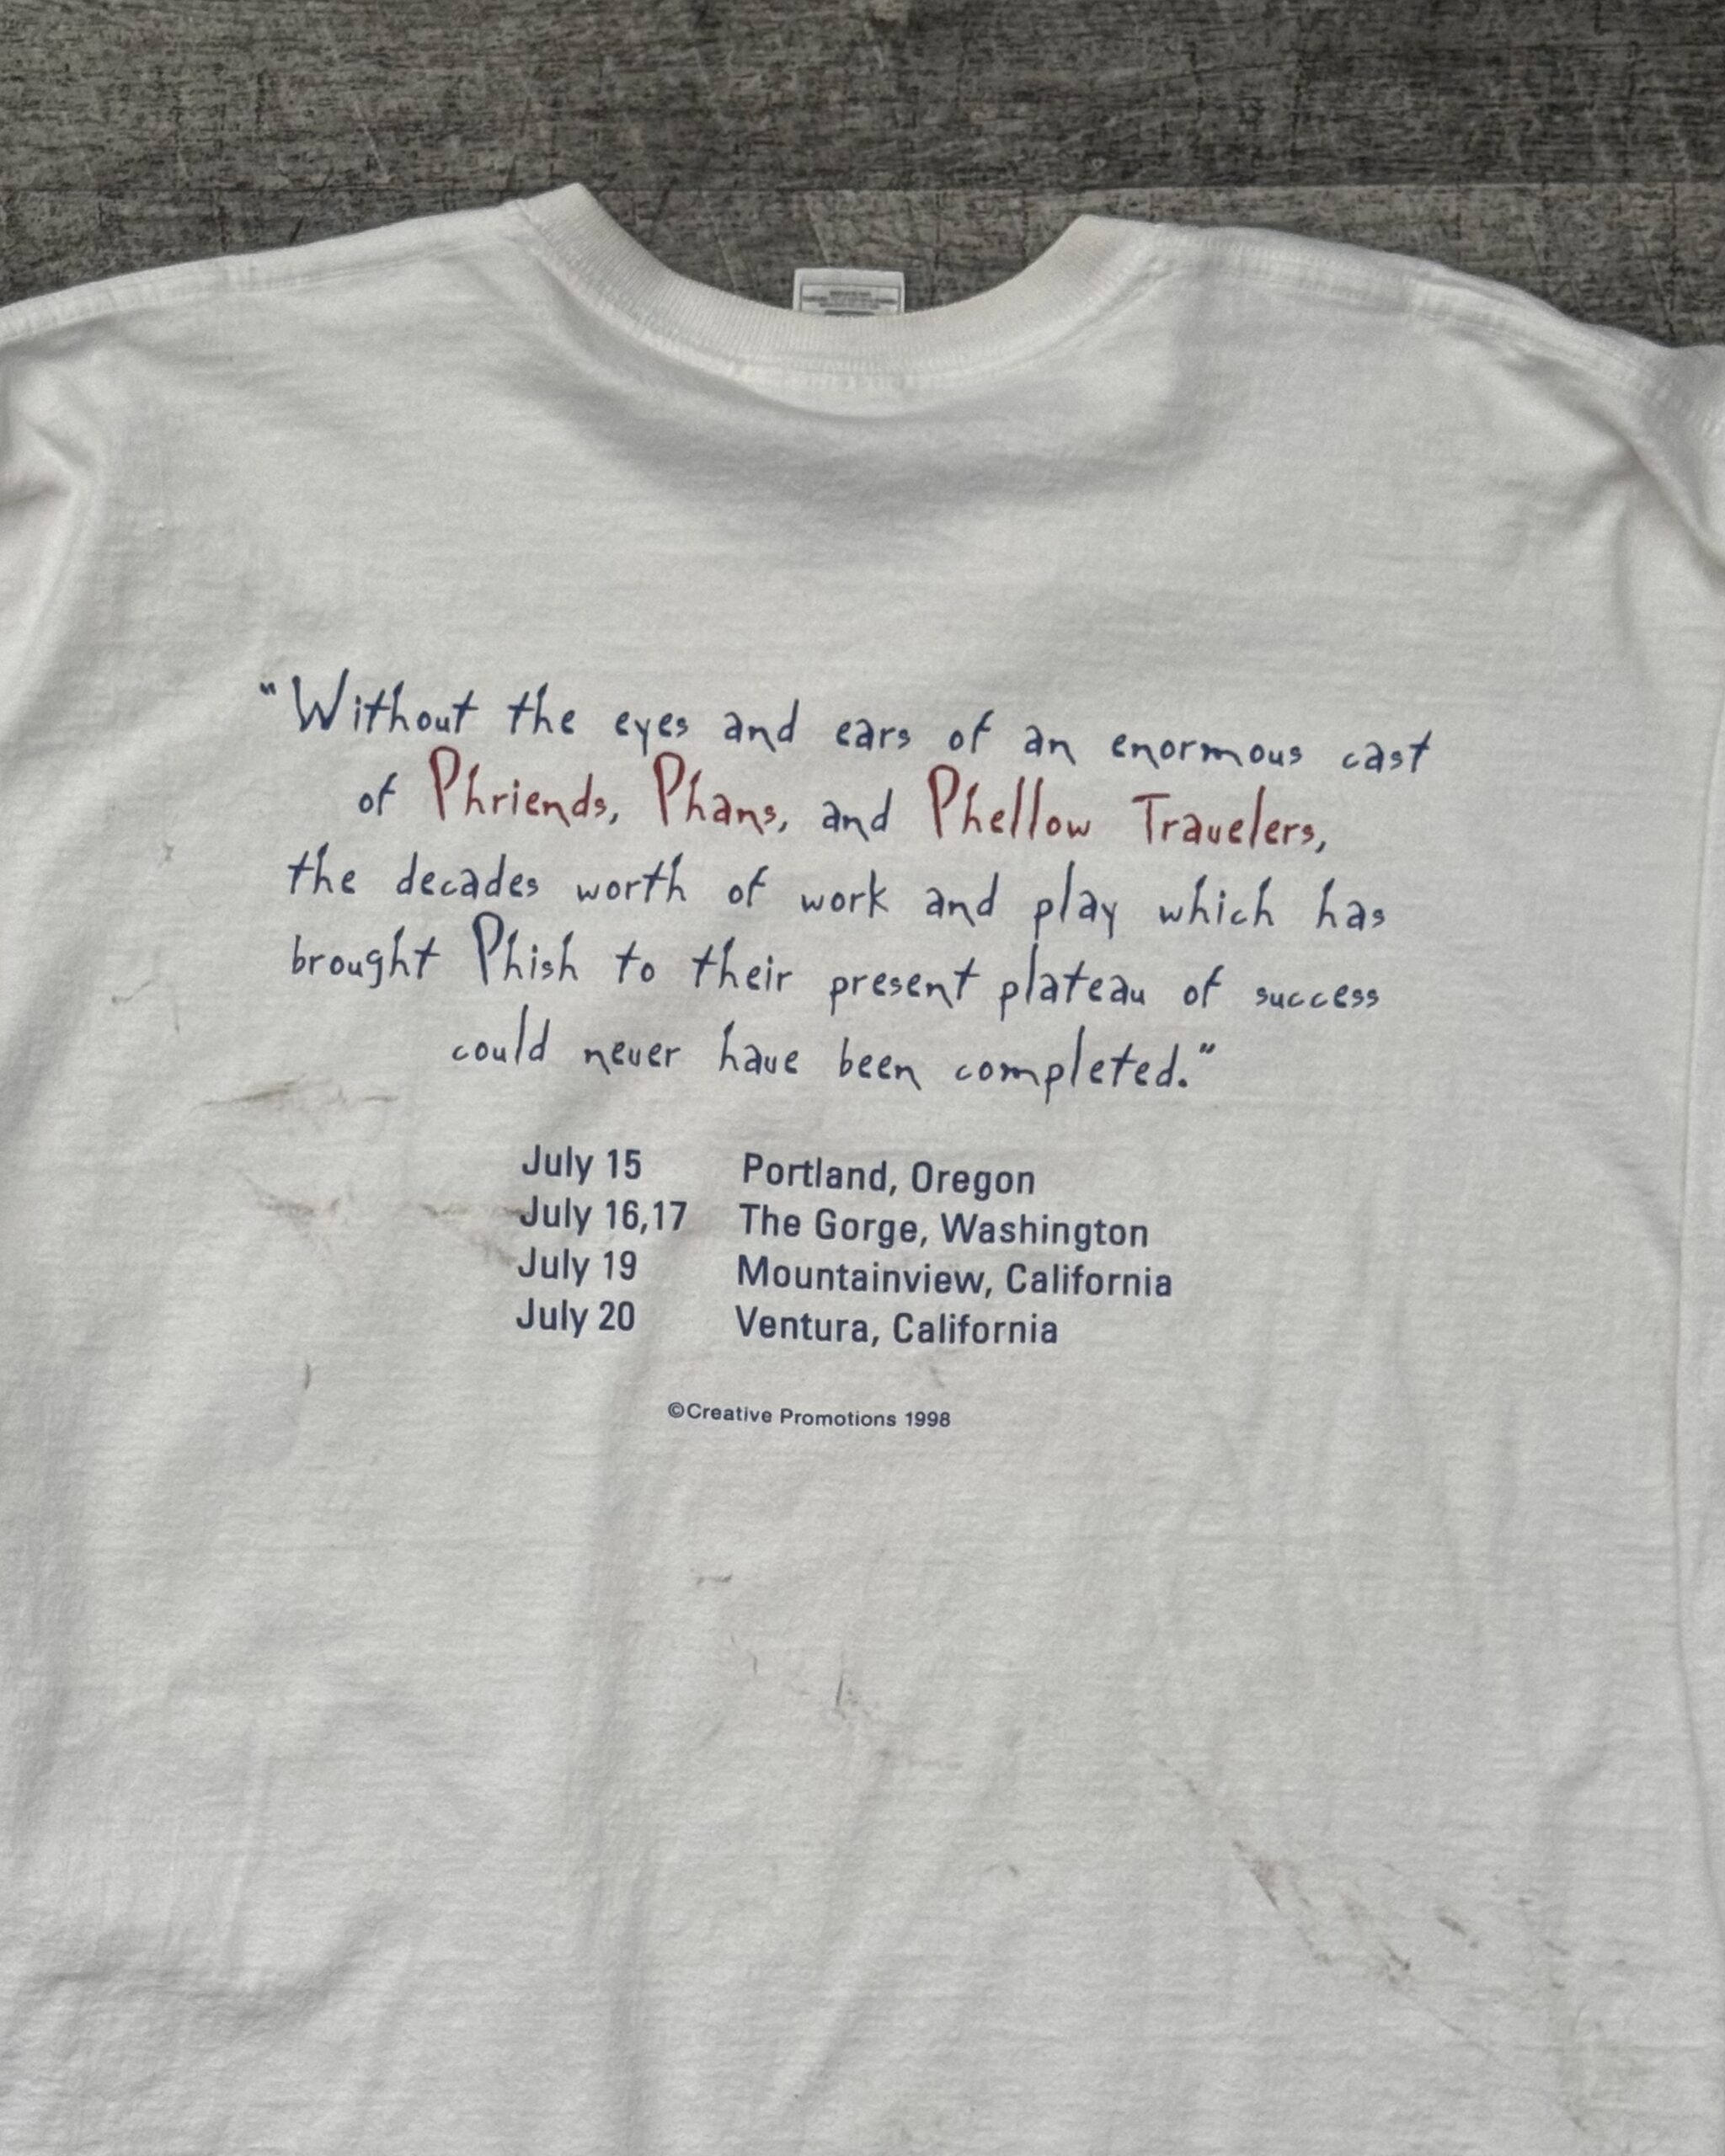 "Without the eyes and ears of an enormous cast
of Phriends, Phans, and Phellow Travelers,
the decades worth of work and play which has
brought Phish to their present plateau of success
could never have been completed."
July 15 Portland, Oregon
July 16,17 The Gorge, Washington
July 19 Mountainview, California
July 20 Ventura, California
©Creative Promotions 1998